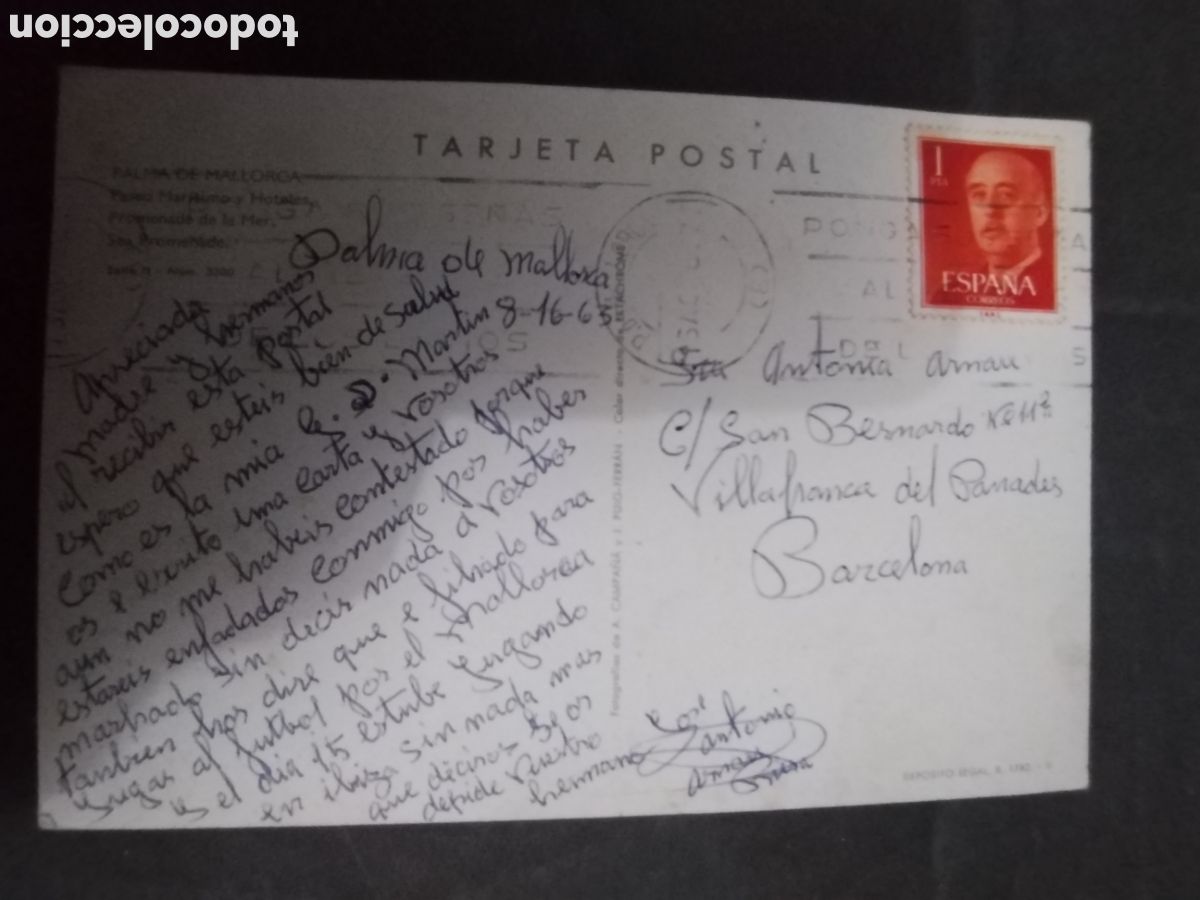 todocoleccion
TARJETA POSTAL
PALMA DE MALLORCA
Paseo Marítimo y Hoteles.
Promenade de la Mer.
Sea Promenade.
Serie II - Núm. 3300
1
PTA
ESPAÑA
CORREOS
PONGA
AL
DEL
SEÑAS
Palma de Mallorca
8-16-65
Apreciada
madre y hermanos
al recibir esta postal
espero que esteis bien de salud
como es la mia le. D. Martin
os e escrito una carta y vosotros
aun no me habeis contestado porque
estareis enfadados conmigo por haber
marchado sin decir nada a vosotros
tanbien hos dire que e fichado para
jugar al futbol por el Mallorca
es el dia 15 estube jugando
en ibiza sin nada mas
que deciros se os
depide vuestro
hermano José
antonio
arnau
Sra Antonia Arnau
C/ San Bernardo Nº 11 2ª
Villafranca del Panades
Barcelona
Fotografías de A. CAMPAÑÁ y J. PUIG-FERRÁN
DEPOSITO LEGAL B.